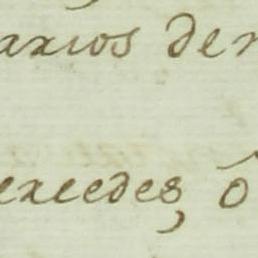 arios de
excedes, ô